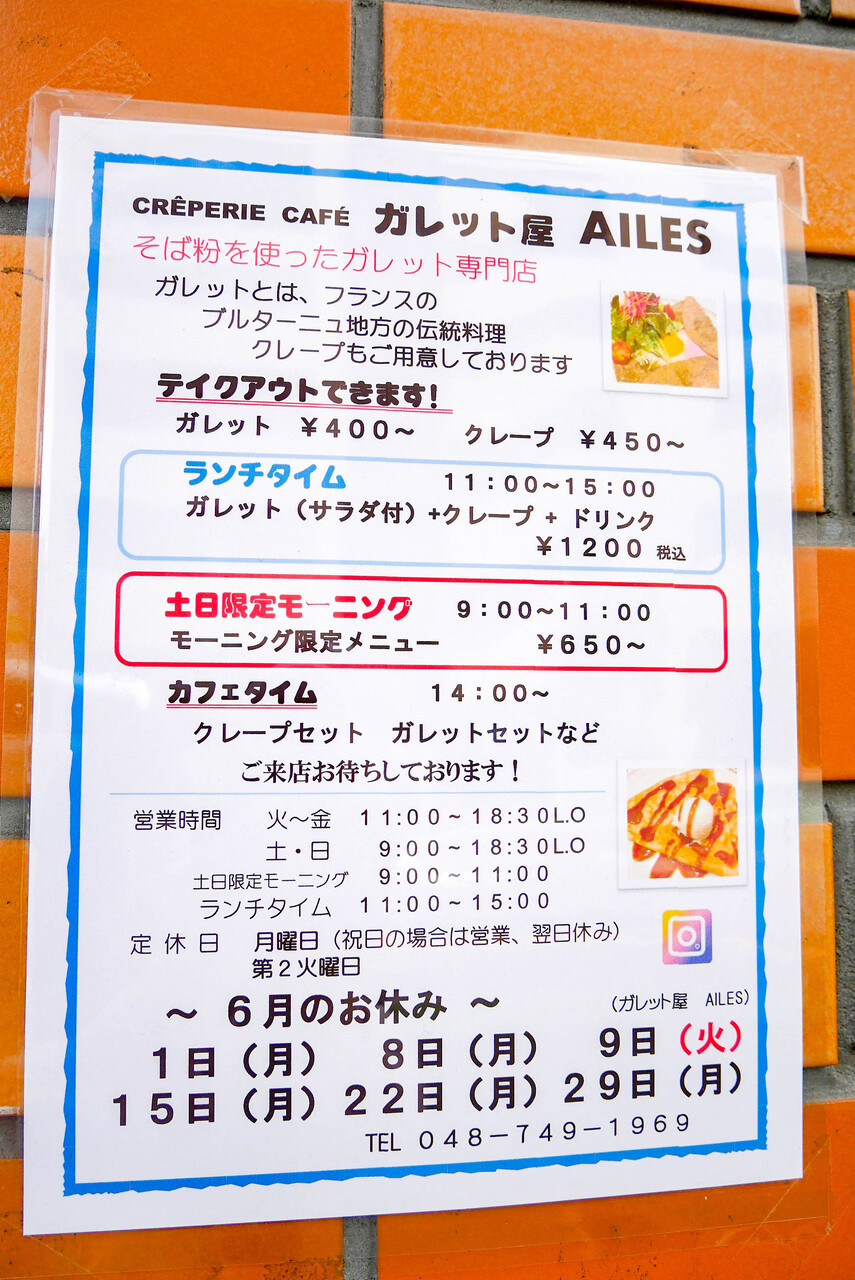 CRÊPERIE CAFÉ ガレット屋 AILES
そば粉を使ったガレット専門店
ガレットとは、フランスの
ブルターニュ地方の伝統料理
クレープもご用意しております
テイクアウトできます!
ガレット ￥４００～ クレープ ￥４５０～
ランチタイム １１：００～１５：００
ガレット（サラダ付）+クレープ + ドリンク
￥１２００ 税込
土日限定モーニング ９：００～１１：００
モーニング限定メニュー ￥６５０～
カフェタイム １４：００～
クレープセット ガレットセットなど
ご来店お待ちしております！
営業時間 火～金 １１：００～１８：３０L.O
土・日 ９：００～１８：３０L.O
土日限定モーニング ９：００～１１：００
ランチタイム １１：００～１５：００
定休日 月曜日（祝日の場合は営業、翌日休み）
第２火曜日
～ ６月のお休み ～ （ガレット屋 AILES）
１日（月） ８日（月） ９日（火）
１５日（月）２２日（月）２９日（月）
TEL ０４８－７４９－１９６９